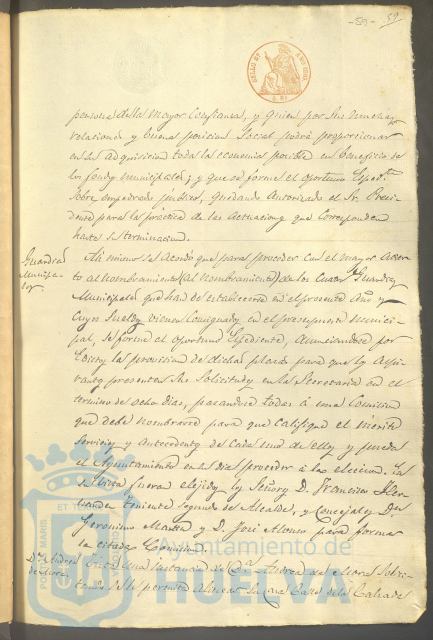 59
persona de la mayor Confianza, y quien por sus muchas
relaciones y buena posicion Social podrá proporcionar
en su adquisicion toda la economia posible en beneficio de
los fondos municipales; y que se forme el oportuno Espedte
sobre empedrado publico, quedando autorizado el Sr. Presi-
dente para la practica de las actuaciones que correspondan
hasta su terminacion.
Guardas
Municipa-
les.
Asi mismo se acordó que para proceder con el mayor acier-
to al nombramiento (al nombramiento) de los cuatro Guardas
Municipales que han de establecerse en el presente año y
cuyos sueldos vienen consignados en el presupuesto munici-
pal, se forme el oportuno Espediente, anunciandose por
Edictos la provision de dichas plazas para que los aspi-
rantes presenten sus solicitudes en la Secretaria en el
termino de ocho dias, pasandose todas á una Comision
que debe nombrarse para que califique el merito
servicios y antecedentes de cada uno de ellos y pueda
el Ayuntamiento en su dia proceder á la eleccion. En
su vista fueron elejidos los Señores D. Francisco Her-
nandez teniente segundo de Alcalde, y Concejales Dn
Geronimo Martin y D. José Alonso para formar
la citada Comision.
Vista una instancia de Da. Andrea de la Corte solici-
tando se le permita alinear su casa calle de la Calzada
Ayuntamiento de
HUELVA